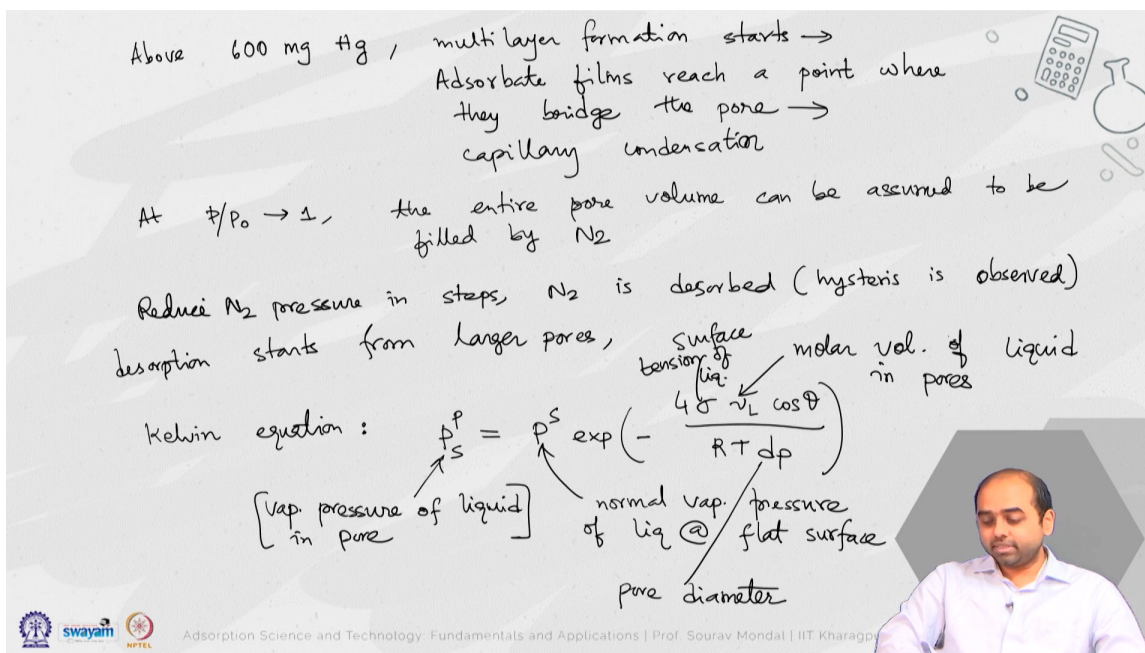 Above 600 mg Hg, multilayer formation starts →
Adsorbate films reach a point where
they bridge the pore →
capillary condensation
At P/P₀ → 1, the entire pore volume can be assumed to be
filled by N2
Reduce N2 pressure in steps, N2 is desorbed (hysteris is observed)
desorption starts from larger pores,
surface
tension of
liq.
molar vol. of liquid
in pores
Kelvin equation : P_s^P = P^s exp(- 4 σ v_L cos θ / R T dp)
[vap. pressure of liquid
in pore]
normal vap. pressure
of liq @ flat surface
pore diameter
swayam
NPTEL
Adsorption Science and Technology: Fundamentals and Applications | Prof. Sourav Mondal | IIT Kharagp